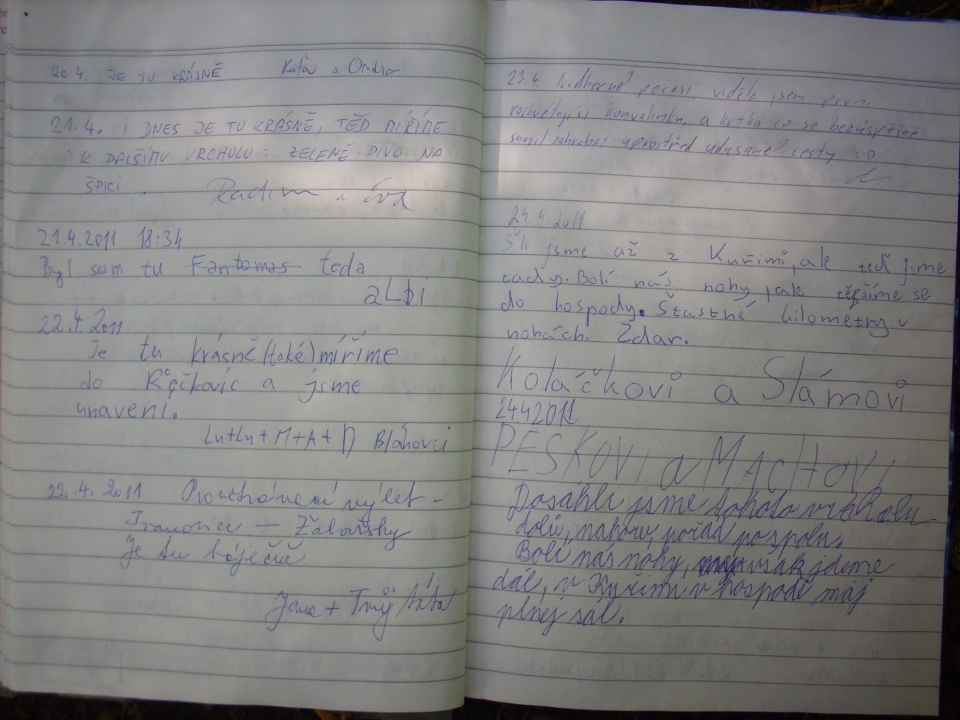 20.4. JE TU KRÁSNĚ Káťa a Ondra
21.4. I DNES JE TU KRÁSNĚ, TEĎ MÍŘÍME
K DALŠÍMU VRCHOLU: ZELENÉ DIVO NA
ŠPICI.
Radim a Iva
21.4.2011 18:34
Byl sem tu Fantomas teda
aLbi
22.4.2011
Je tu krásně (také) míříme
do Řečkovic a jsme
unaveni.
Lu+Lu+M+A+D Bláhovci
22.4.2011 výlet -
Ivanovice - Žabovřesky
Je tu báječně
Jana + Tvůj táta
23.4. Nádherné počasí viděli jsem první
rozkvetající konvalinku, a krtka co se bezúspěšně
snažil zahrabat uprostřed udusané cesty :-D
24.4.2011
Šli jsme až z Kuřimi, ale teď jsme
tady. Bolí nás nohy, ale těšíme se
do hospody. Šťastné kilometry v
nohách. Zdar.
Koláčkovi a Slámovi
24.4.2011
PEŠKOVI a MACHOVI
Dosáhli jsme tohoto vrcholu
dolů, nahoru, pořád pospolu.
Bolí nás nohy, však jdeme
dál, v Kuřimi v hospodě maj
plnej sál.